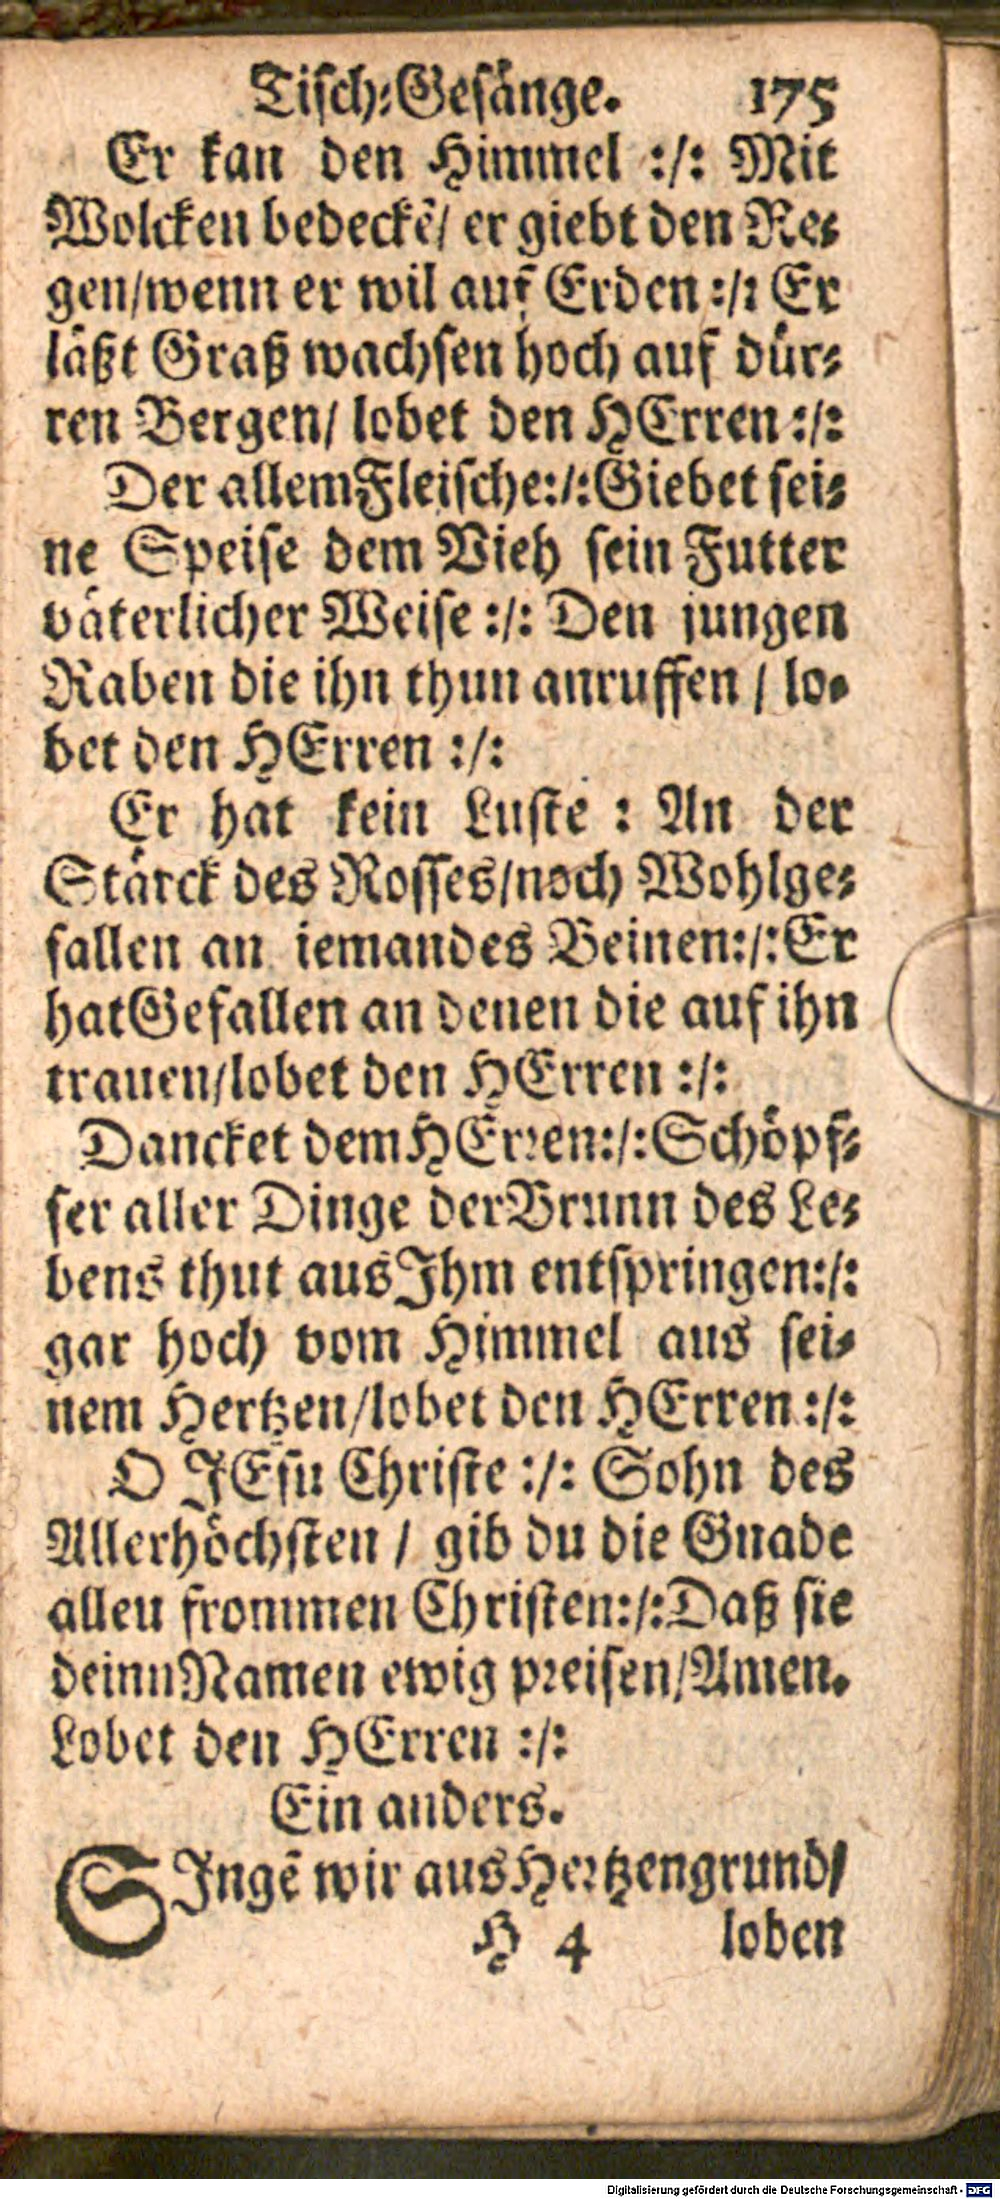 Tisch-Gesänge. 175
Er kan den Himmel :/: Mit
Wolcken bedeckẽ/ er giebt den Re-
gen/wenn er wil auf Erden :/: Er
läßt Graß wachsen hoch auf dür-
ren Bergen/ lobet den HErren :/:
Der allem Fleische:/:Giebet sei-
ne Speise dem Vieh sein Futter
väterlicher Weise :/: Den jungen
Raben die ihn thun anruffen / lo-
bet den HErren :/:
Er hat kein Luste : An der
Stärck des Rosses/noch Wohlge-
fallen an iemandes Beinen:/:Er
hat Gefallen an denen die auf ihn
trauen/lobet den HErren :/:
Dancket dem HErren:/:Schöpf-
fer aller Dinge der Brunn des Le-
bens thut aus Ihm entspringen:/:
gar hoch vom Himmel aus sei-
nem Hertzen/lobet den HErren :/:
O JEsu Christe :/: Sohn des
Allerhöchsten / gib du die Gnade
allen frommen Christen:/:Daß sie
deinn Namen ewig preisen/Amen.
Lobet den HErren :/:
Ein anders.
SIngẽ wir aus Hertzengrund/
H 4 loben
Digitalisierung gefördert durch die Deutsche Forschungsgemeinschaft - DFG